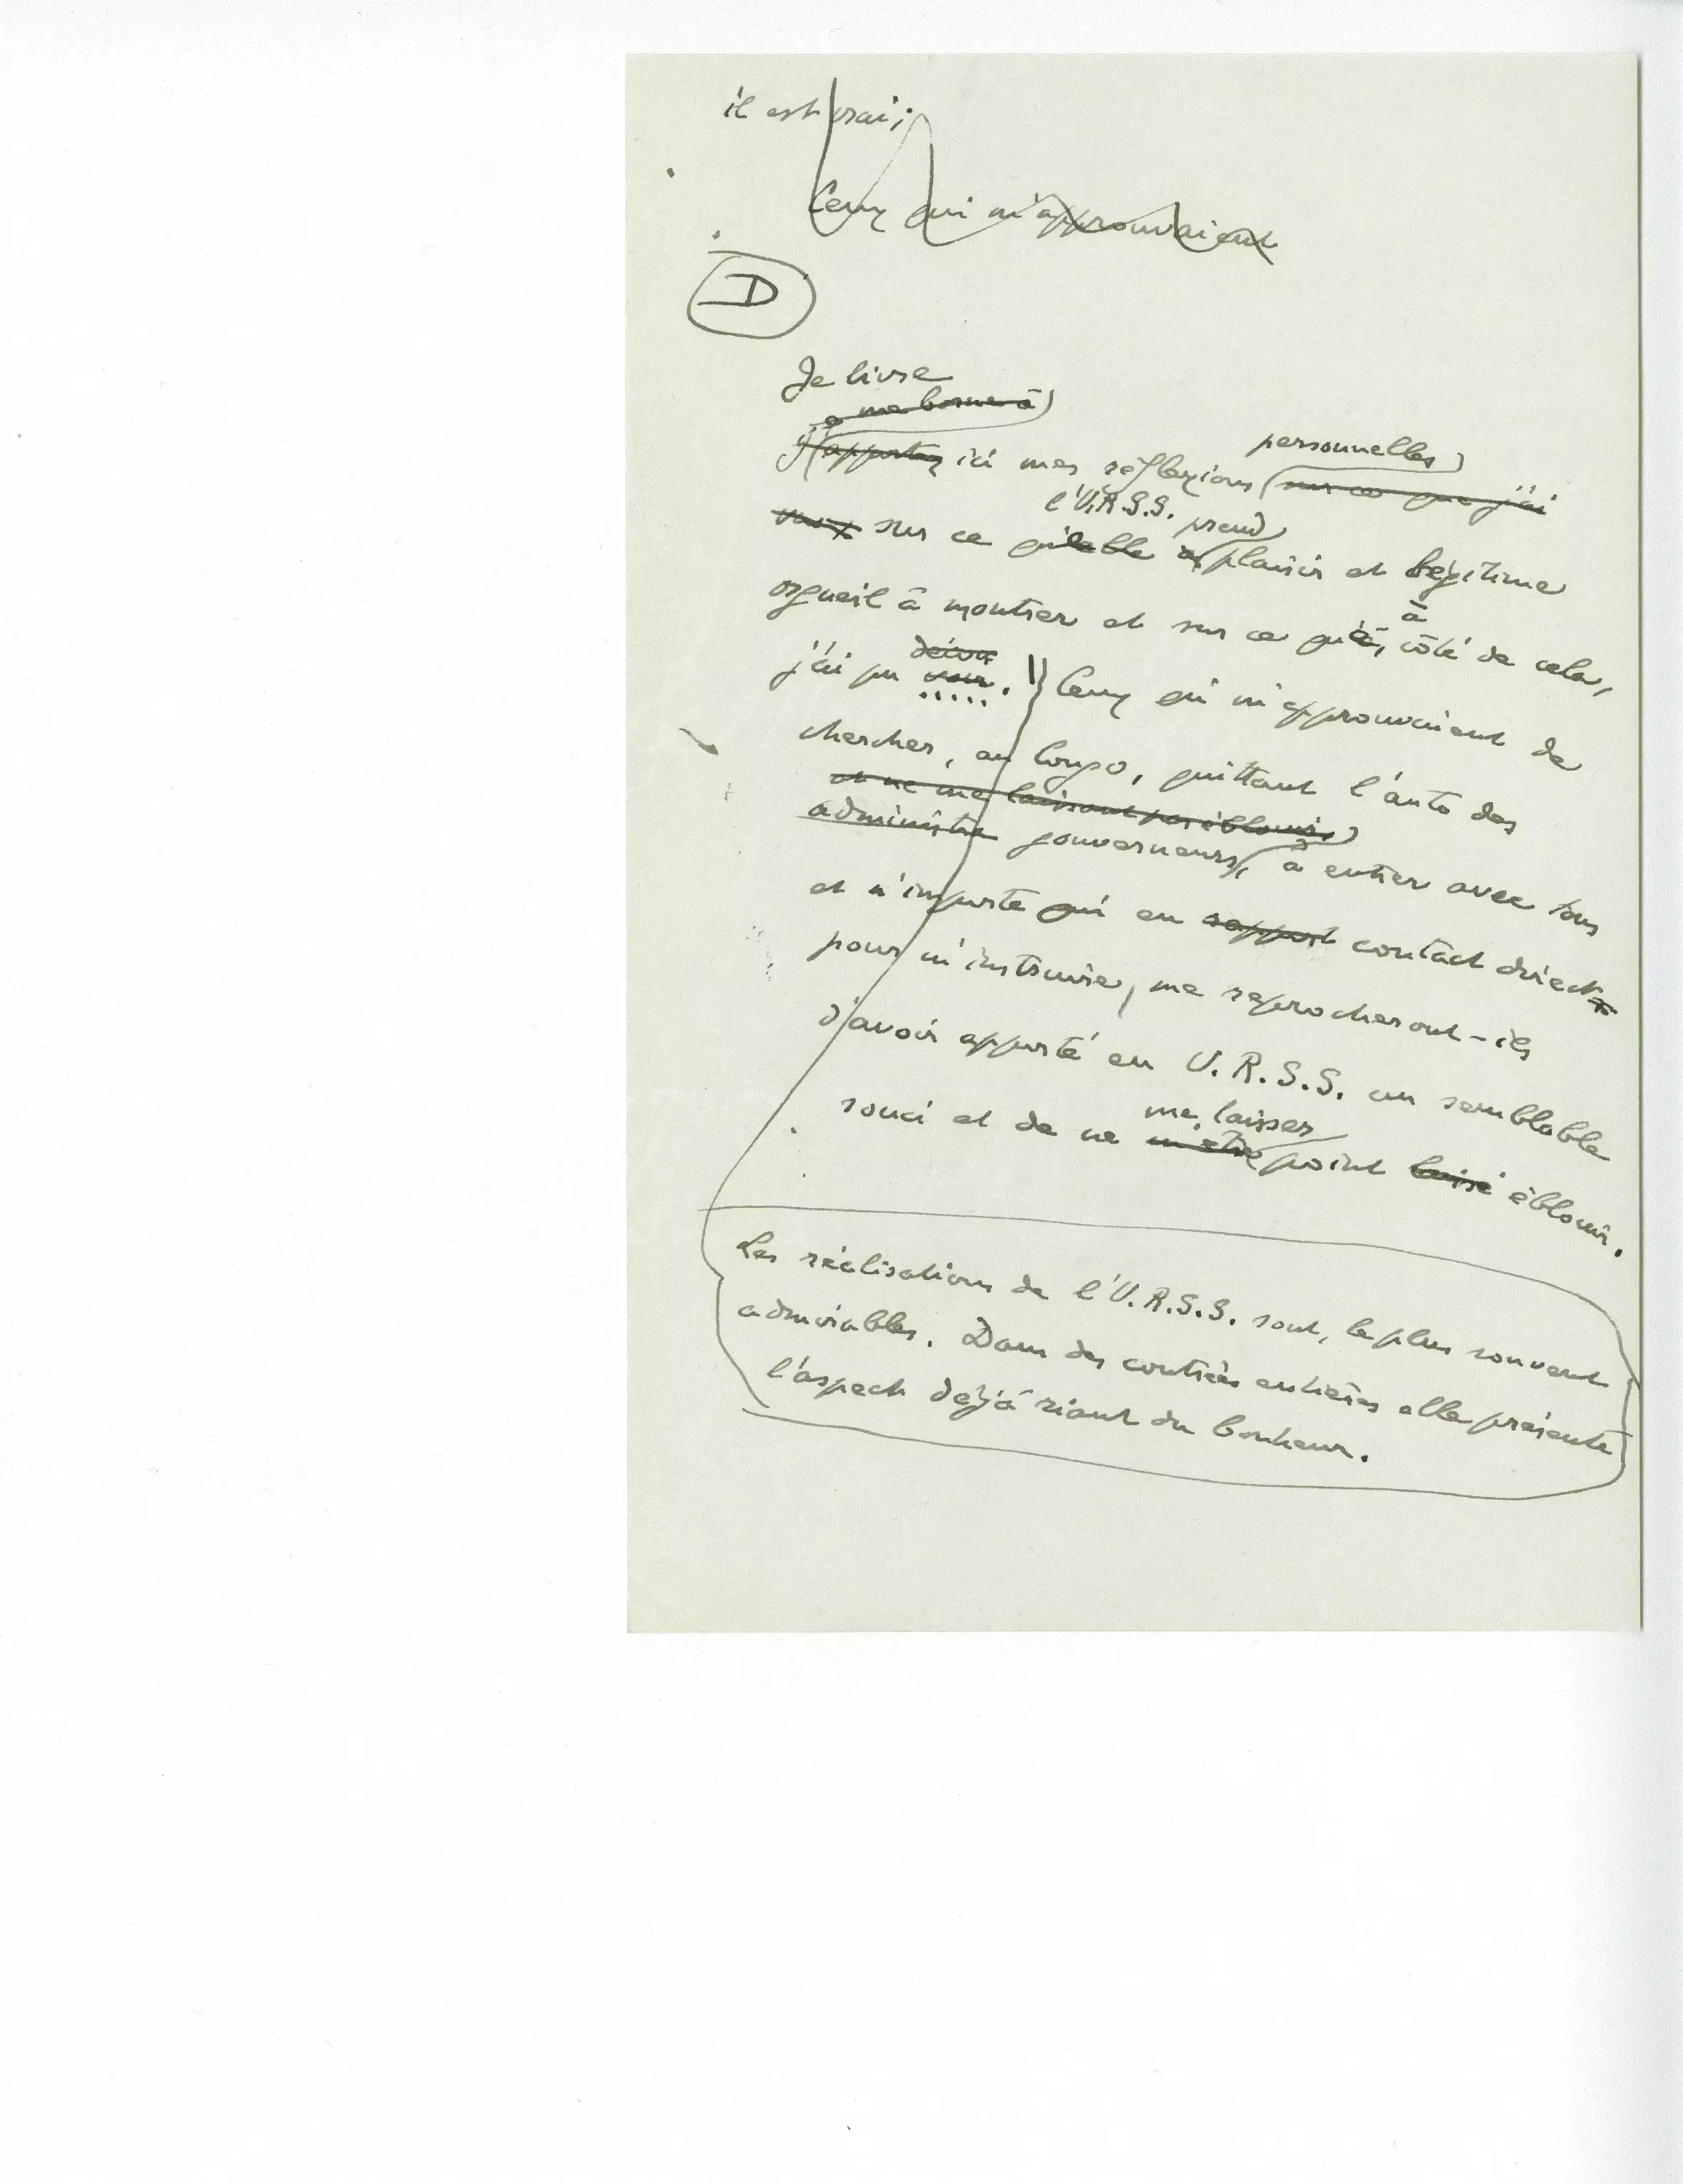 il est vrai ;
Ceux qui m'approuvaient
D
Je livre
e me borne à
J'apporte ici mes réflexions personnelles sur ce que j'ai
vu sur ce qu'elle a l'U.R.S.S. prend plaisir et légitime
orgueil à montrer et sur ce qu'à, à côté de cela,
j'ai pu voir. Ceux qui m'approuvaient de
chercher, au Congo, quittant l'auto des
et ne me laissant pas éblouir,
administra gouverneurs, à entrer avec tous
et n'importe qui en rapport contact direct
pour m'instruire, me reprocheront-ils
d'avoir apporté en U.R.S.S. un semblable
souci et de ne me laisser
m'être point laissé éblouir.
Les réalisations de l'U.R.S.S. sont, le plus souvent
admirables. Dans des contrées entières elle présente
l'aspect déjà riant du bonheur.